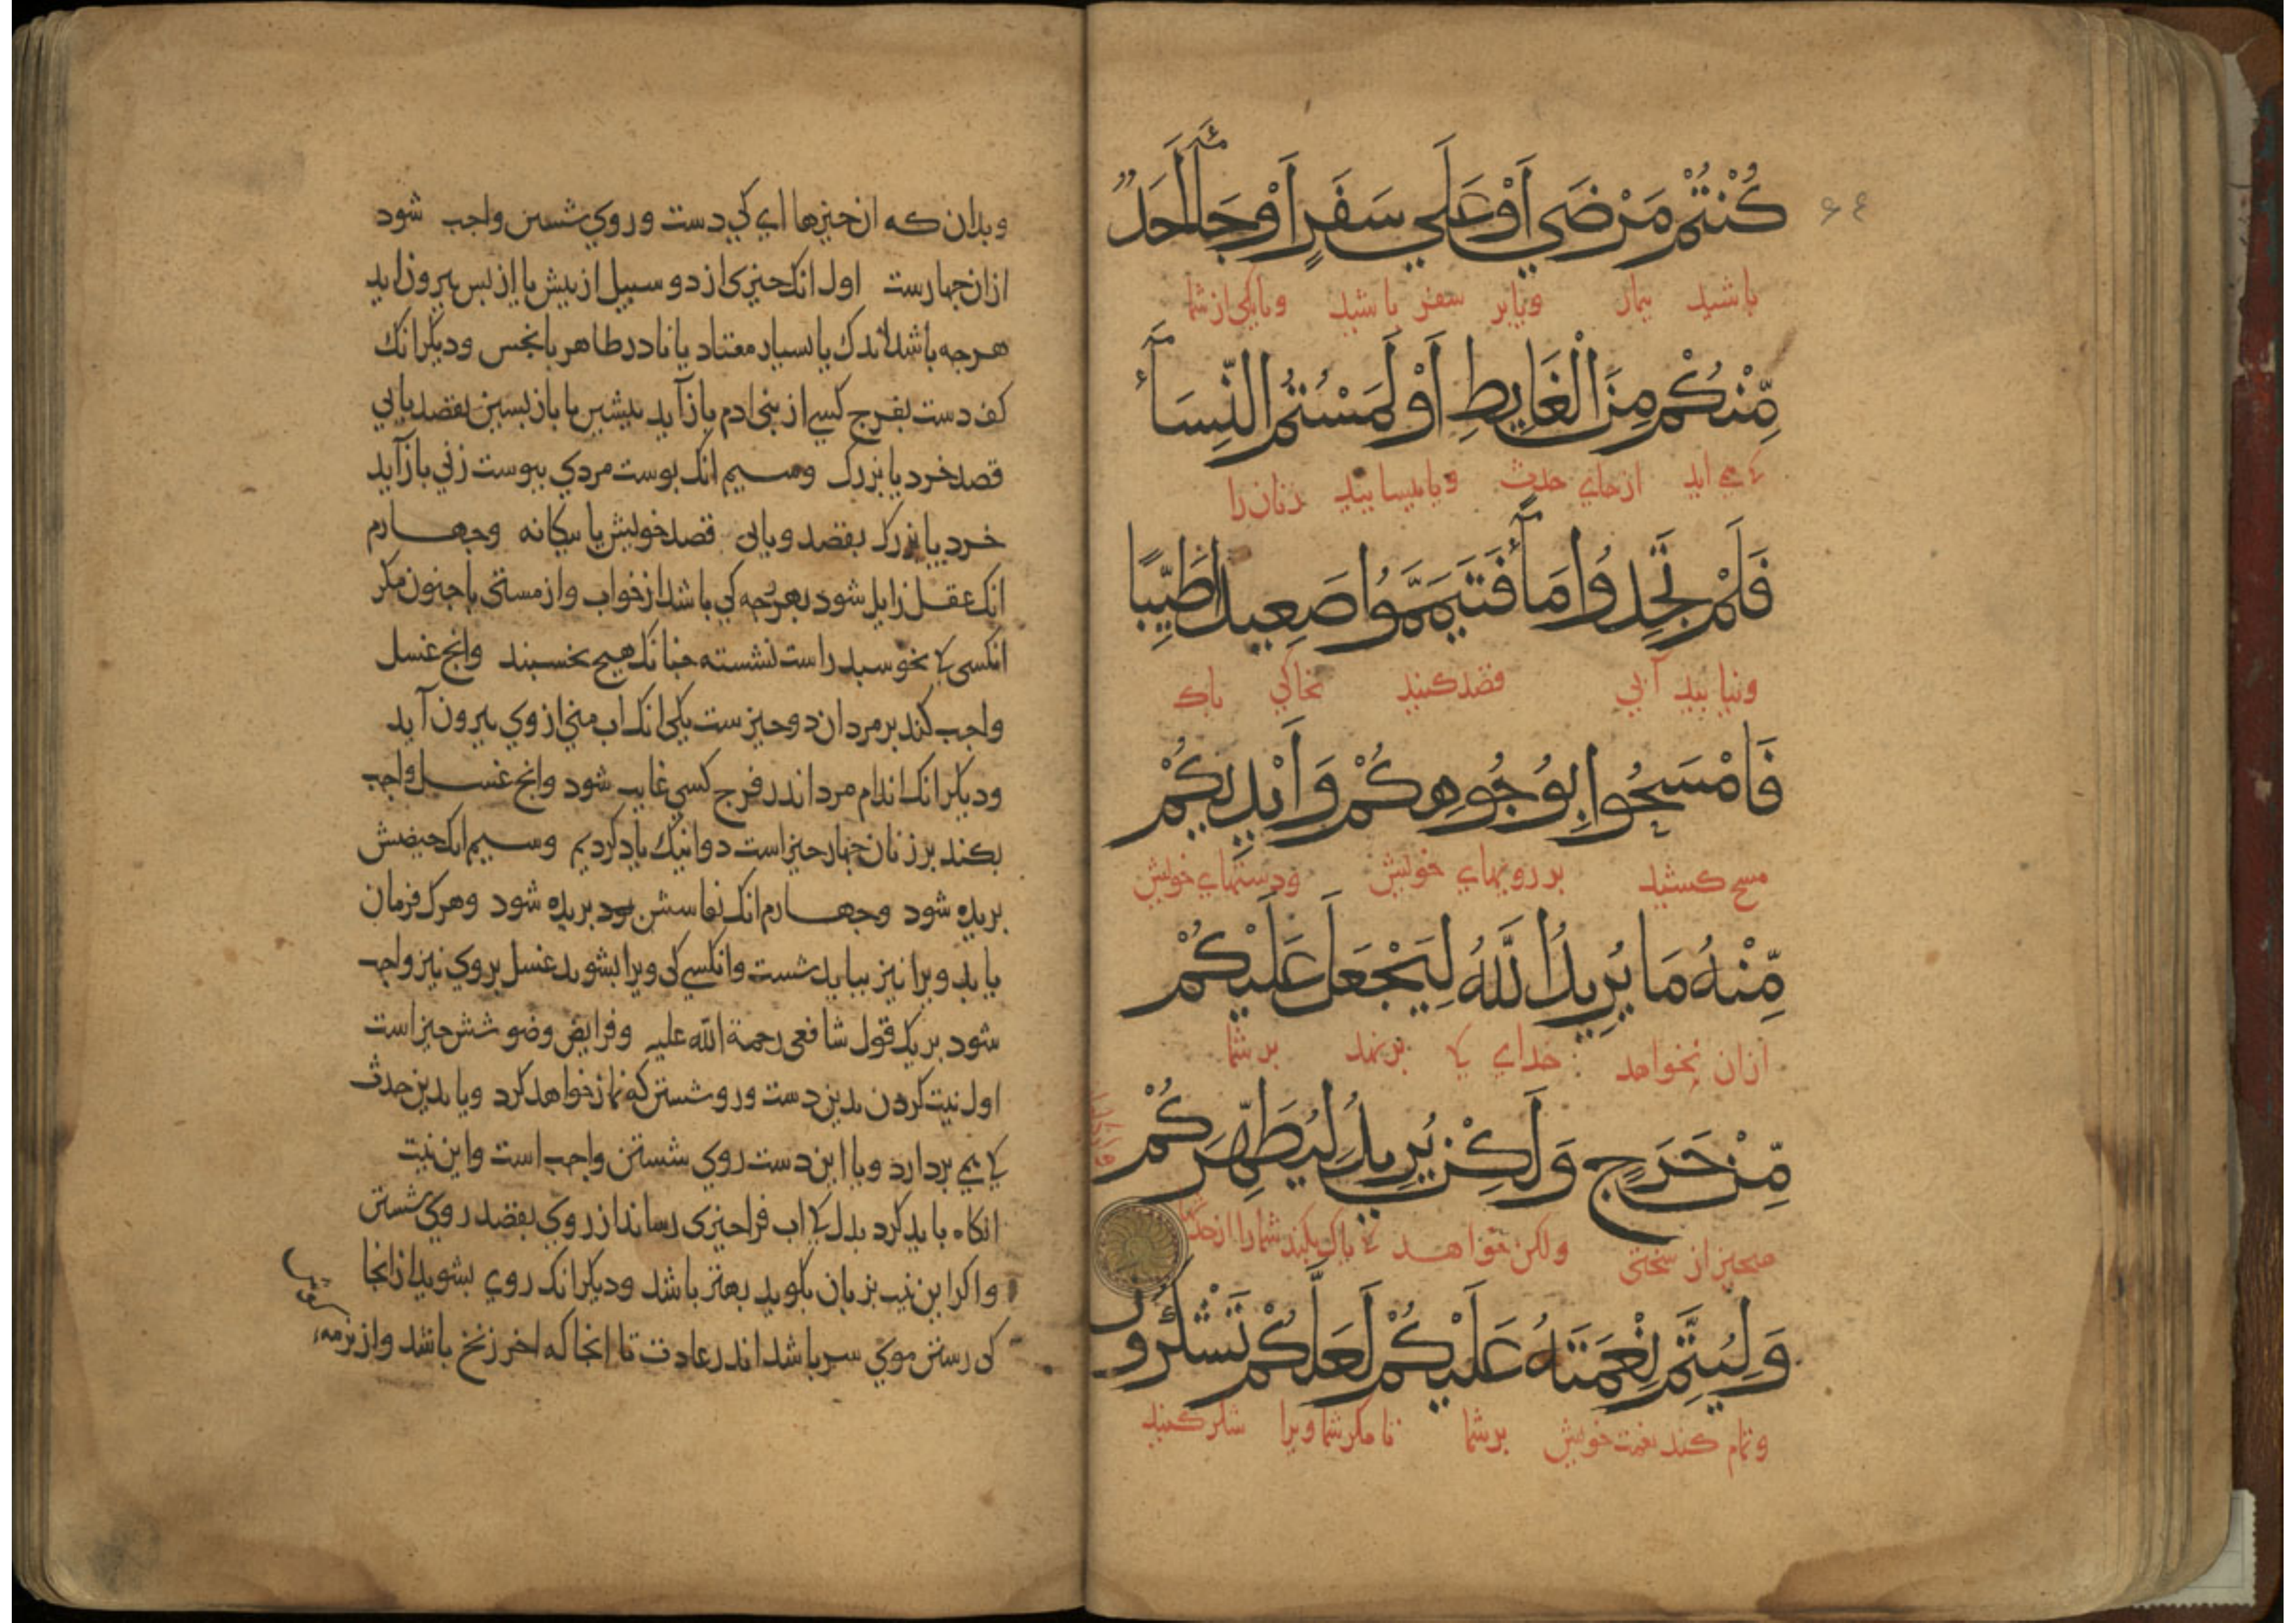 ۶۴
كُنْتُمْ مَرْضَي اَوْ عَلَي سَفَرٍ اَوْ جَآءَ اَحَدٌ
باشید بیمار ویا بر سفر باشید ویا یکی از شما
مِّنْكُمْ مِنَ الْغَايِطِ اَوْ لَمَسْتُمُ النِّسَآءَ
کی می اید از جای حدث ویا بپسایید زنان را
فَلَمْ تَجِدُوا مَآءً فَتَيَمَّمُوا صَعِيدًا طَيِّبًا
ونیابید آبی قصد کنید بخاکی باک
فَامْسَحُوا بِوُجُوهِكُمْ وَاَيْدِيكُمْ
مسح کشید بر رویهای خویش ودستهای خویش
مِّنْهُ مَا يُرِيدُ اللَّهُ لِيَجْعَلَ عَلَيْكُمْ
ازان نخواهد خدای کی برنهد بر شما
مِّنْ حَرَجٍ وَلَكِنْ يُرِيدُ لِيُطَهِّرَكُمْ
هیچیز از سختی ولکن خواهد کی باک بکند شما را از
وَلِيُتِمَّ نِعْمَتَهُ عَلَيْكُمْ لَعَلَّكُمْ تَشْكُرُونَ
وتمام کند نعمت خویش بر شما تا مگر شما ویرا شکر کنید
وبدان که ان حیزها ای کی دست وروی شستن واجب شود
ازان جهارست اول انک حیزی از دو سبیل از بیش یا از بس بیرون اید
هرجه باشد اندک یا بسیار معتاد یا نادر طاهر یا نجس ودیکر انک
کف دست بفرج کسی از بنی ادم باز آید بیشین یا بازبسین بقصد یا بی
قصد خرد یا بزرک وسیم انک بوست مردی ببوست زنی باز آید
خرد یا بزرک بقصد ویا بی قصد خویش یا بیکانه وجهارم
انک عقل زایل شود بهرجه کی باشد از خواب واز مستی یا جنون مکر
انکسی کی بخوسبد راست نشسته جنانک هیج بخسبند وانج غسل
واجب کند بر مردان دو حیزست یکی انک اب منی از وی بیرون آید
ودیکر انک اندام مرد اندر فرج کسی غایب شود وانج غسل واجب
بکند بر زنان جهار حیز است دو انیک یاد کردیم وسیم انک حیضش
بریده شود وجهارم انک نفاسش بریده شود وهرک فرمان
یابد ویرا نیز بباید شست وانکسی کی ویرا بشوید غسل بروی نیز واجب
شود بریک قول شافعی رحمة الله علیه وفرایض وضو شش حیز است
اول نیت کردن بدین دست ورو شستن که نماز خواهد کرد ویا بدین حدث
کی می بردارد ویا این دست روی شستن واجب است واین نیت
انکاه باید کرد بدل کی اب فرا حیزی رساند از روی بقصد روی شستن
واکر این نیت بزبان بکوید بهتر باشد ودیکر انک روی بشوید از انجا
کی رستن موی سر باشد اندر عادت تا انجا که اخر زنخ باشد واز نرمه